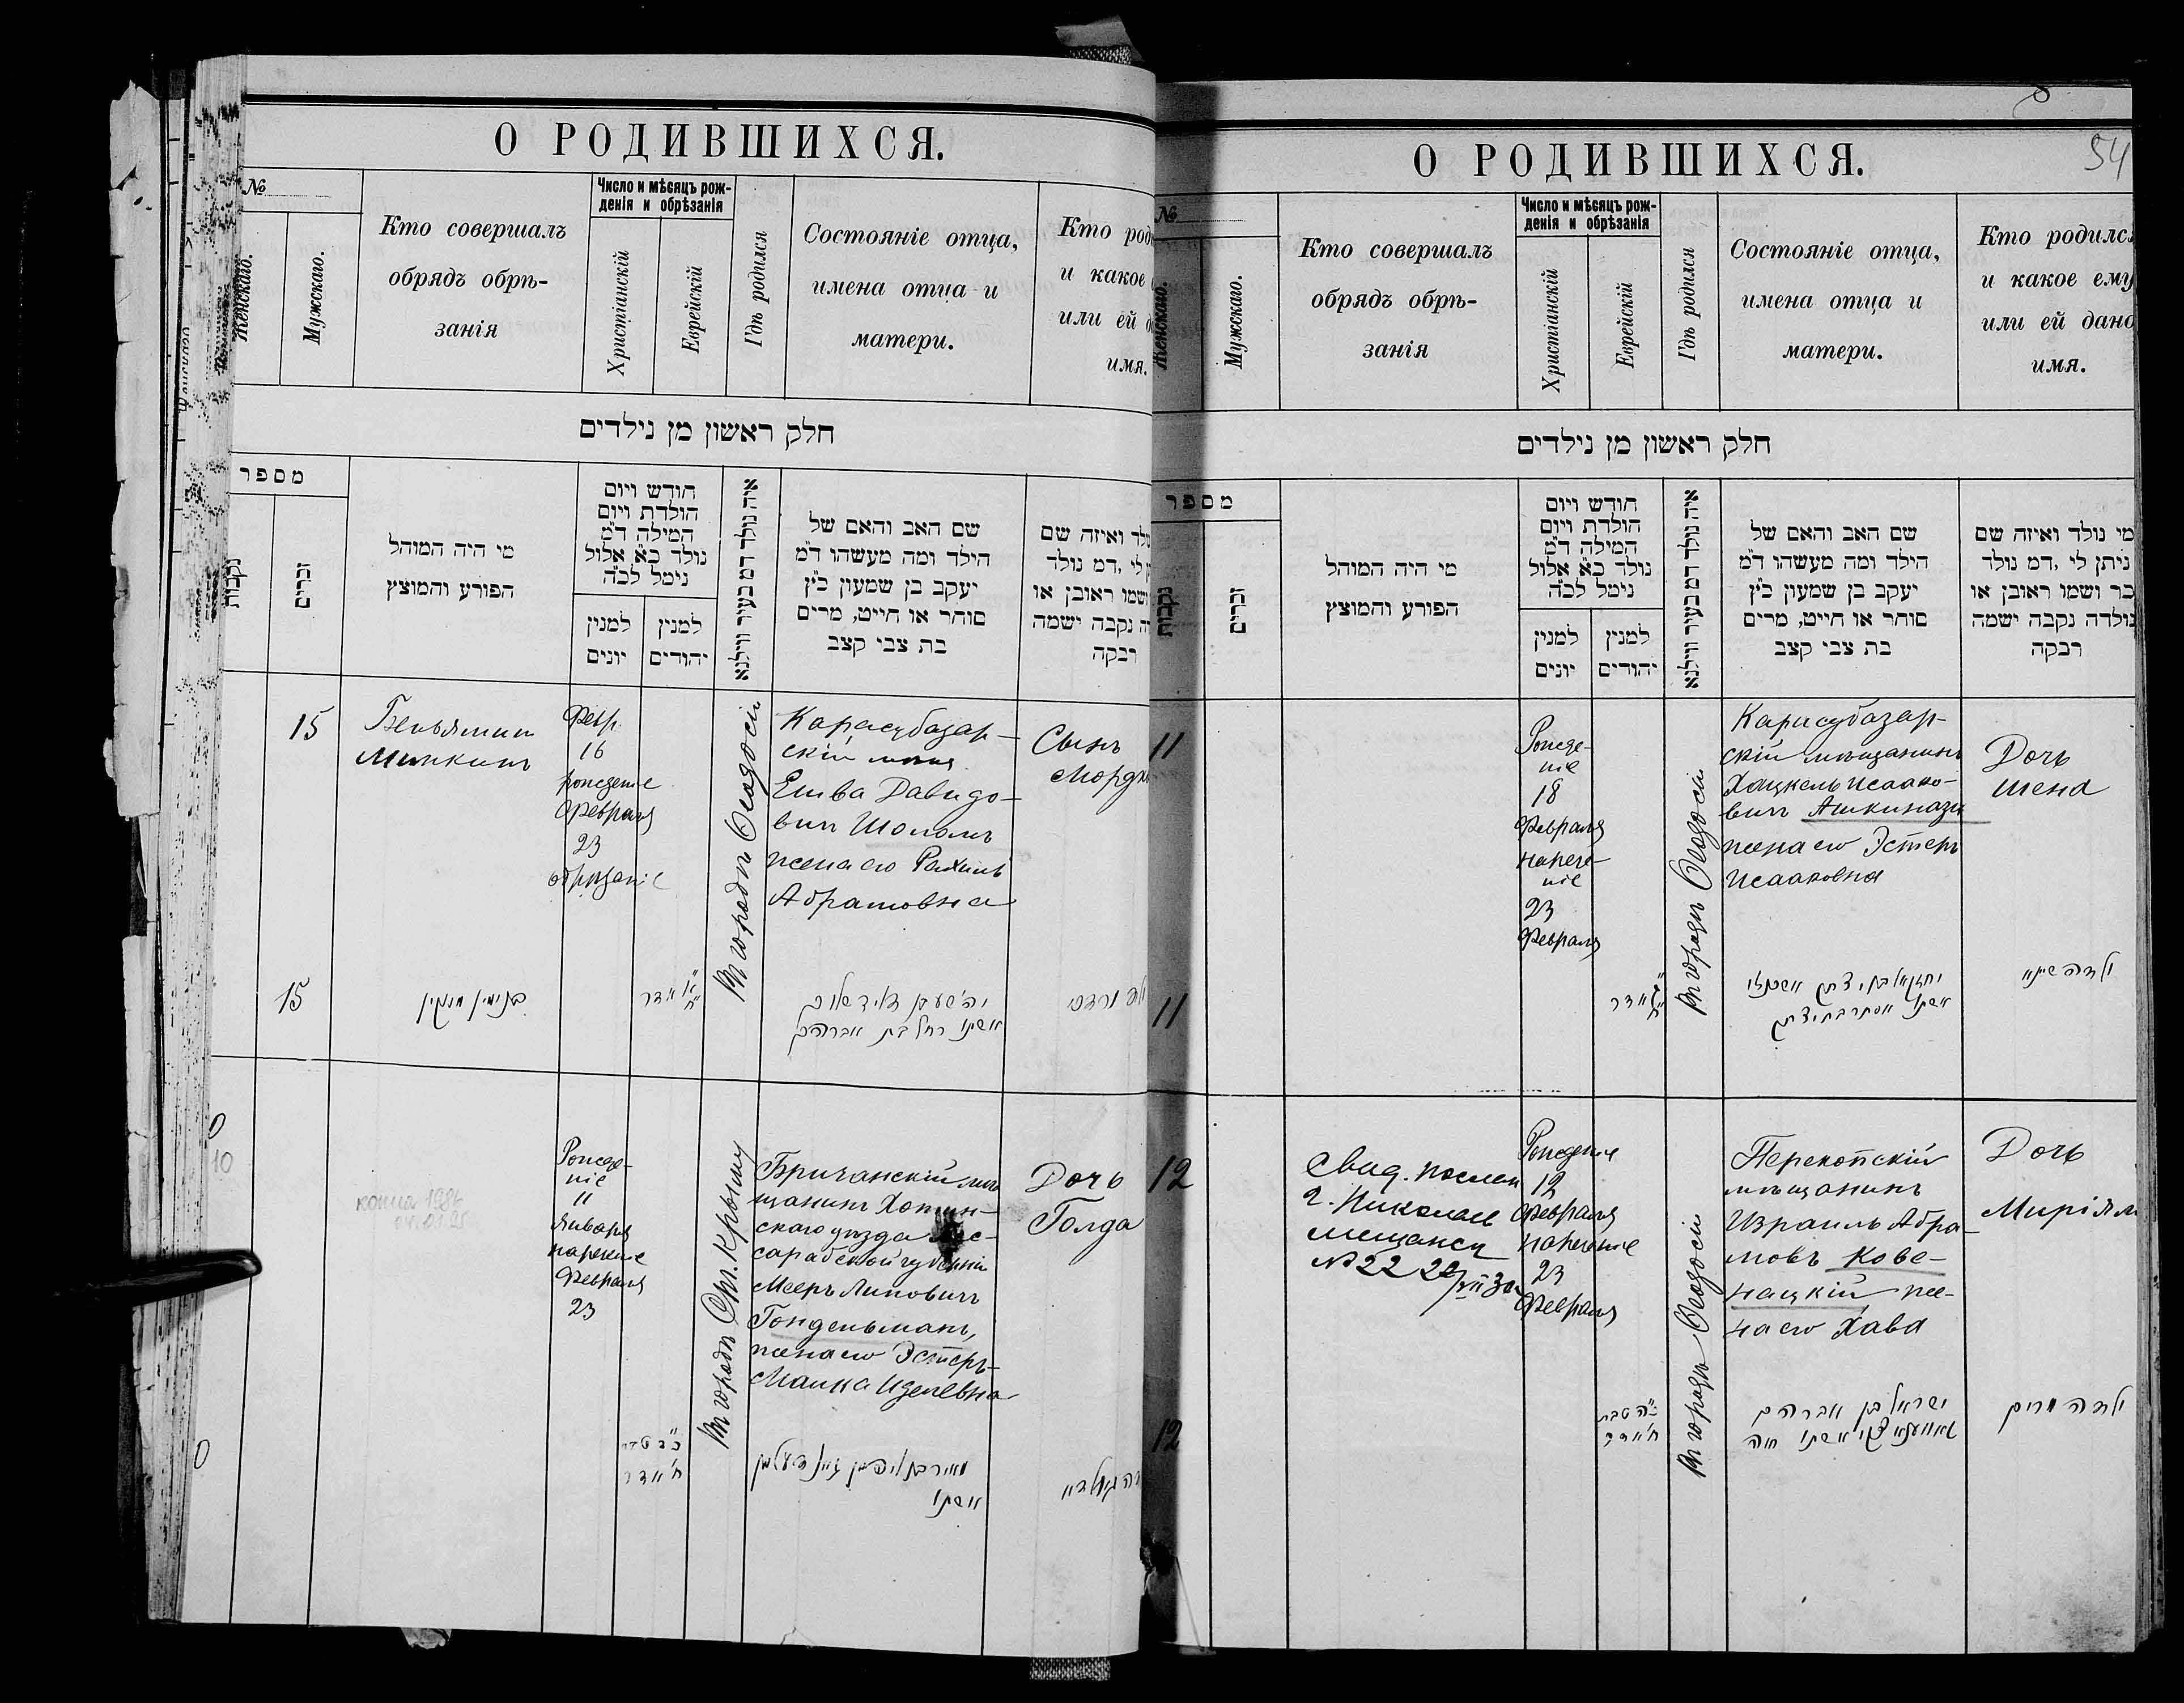 О РОДИВШИХСЯ.
№
Женскаго.
Мужскаго.
Кто совершалъ
обрядъ обрѣ-
занія
Число и мѣсяцъ рож-
денія и обрѣзанія
Христіанскій
Еврейскій
Гдѣ родился
Состояніе отца,
имена отца и
матери.
Кто род
и какое
или ей д
имя.
חלק ראשון מן נילדים
מספר
נקבות
זכרים
מי היה המוהל
הפורע והמוצץ
חודש ויום
הולדת ויום
המילה ד"מ
נולד כ"א אלול
נימל לכ"ה
למנין
יונים
למנין
יהודים
איה נולד דמ בעיר ווילנא
שם האב והאם של
הילד ומה מעשהו ד"מ
יעקב בן שמעון כ"ץ
סוחר או חייט, מרים
בת צבי קצב
לד ואיזה שם
לי, דמ נולד
ושמו ראובן או
ה נקבה ישמה
רבקה
15
Беньямин
Минкинъ
Февр.
16
рождение
Февраля
23
обрѣзаніе
Въ городѣ Ѳеодосіи
Карасубазар-
скій мѣщ
Ешва Давидо-
вич Шоломъ
жена его Рахиль
Абрамовна
Сынъ
Мордх
15
בנימין מינקין
אדר
יהושע בן דוד שלום
אשתו רחל בת אברהם
10
копия 1984
Рожде-
ніе
11
Января
наречение
Февраля
23
Въ городѣ Ст. Крыму
Бричанскій мѣ-
щанинъ Хотин-
скаго уѣзда Бес-
сарабской губерніи
Мееръ Липович
Гондельманъ,
жена его Эстеръ-
Малка Иделевна
Дочь
Голда
ח' אדר
אשתו
О РОДИВШИХСЯ.
54
№
Женскаго.
Мужскаго.
Кто совершалъ
обрядъ обрѣ-
занія
Число и мѣсяцъ рож-
денія и обрѣзанія
Христіанскій
Еврейскій
Гдѣ родился
Состояніе отца,
имена отца и
матери.
Кто родилс
и какое ему
или ей дано
имя.
חלק ראשון מן נילדים
מספר
נקבות
זכרים
מי היה המוהל
הפורע והמוצץ
חודש ויום
הולדת ויום
המילה ד"מ
נולד כ"א אלול
נימל לכ"ה
למנין
יונים
למנין
יהודים
איה נולד דמ בעיר ווילנא
שם האב והאם של
הילד ומה מעשהו ד"מ
יעקב בן שמעון כ"ץ
סוחר או חייט, מרים
בת צבי קצב
מי נולד ואיזה שם
ניתן לי, דמ נולד
כר ושמו ראובן או
נולדה נקבה ישמה
רבקה
11
Рожде-
ніе
18
Февраля
нарече-
ніе
23
Февраля
Въ городѣ Ѳеодосіи
Карасубазар-
скій мѣщанинъ
Хацкель Исаако-
вич Ашкинази
жена его Эстеръ
Исааковна
Дочь
Шена
11
אדר
יחזקאל בן יצחק אשכנזי
אשתו אסתר בת יצחק
ילדה שיינא
12
Свид. послан
г. Николаев
мещанск
№ 22 22
Рождение
12
Февраля
наречение
23
Февраля
Въ городѣ Ѳеодосіи
Перекопскій
мѣщанинъ
Израиль Абра-
мовъ Кове-
нацкій же-
на его Хава
Дочь
Миріям
12
כ"ה טבת
ח' אדר
ישראל בן אברהם
אשתו חוה
ילדה מרים